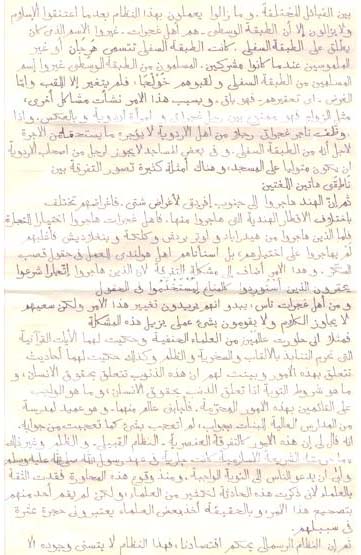 بين القبائل المختلفة. وما زالوا يعملون بهذا النظام بعدما اعتنقوا الإسلام
ولا يزالون إلا أن الطبقة الوسطى - هم أهل غجرات - غيروا الاسم الذي كان
يطلق على الطبقة السفلى. كانت الطبقة السفلى تتسمى هرجان أو غير
الملموسين عندما كانوا مشركين. المسلمون من الطبقة الوسطى غيروا إسم
المسلمين من الطبقة السفلى و لقبوهم خولجيا، فلم يتغير إلا اللقب وأما
الغرض - أي تحقيرهم - فهو باق. وبسبب هذا الأمر نشأت مشاكل أخرى،
مثل الزواج فهو ممنوع بين رجل غجراتي و امرأة أردوية وبالعكس. وإذا
وظف تاجر غجراتي رجلا من أهل الأردوية لا يؤجره ما يستحقه من الأجرة
لأجل أنه من الطبقة السفلى. و في بعض المساجد لا يجوز لرجل من أصحاب الأردوية
أن يكون متوليا على المسجد، و هناك أمثلة كثيرة تصور التفرقة بين
ناطقي هاتين اللغتين
ثم إن الهند هاجروا إلى جنوب إفريقي لأغراض شتى. فأغراضهم تختلف
باختلاف الأقطار الهندية التي هاجروا منها. فأهل غجرات هاجروا اختيارا للتجارة
وأما الذين هاجروا من حيدراباد و أوتر بردش و كلكتة و بنغلاديش فأغلبهم
لم يهاجروا على اختيارهم بل استأثرهم أهل هولندي للعمل في حقول قصب
السكر. و هذا الأمر أضاف إلى مشكلة التفرقة لأن الذين هاجروا إتجارا شرعوا
يحقرون الذين استوردوا كالمتاع ليستخدموا في الحقول
و من أهل غجرات ناس، يبدو أنهم يريدون تغيير هذا الأمر ولكن سعيهم
لا يجاوز الكلام ولا يقومون بشيء عملي يزيل هذه المشكلة
فمثلا أني حاورت عالمين من العلماء الحنفية و حكيت لهما الآيات القرآنية
التي تحرم التنابذ بالألقاب والسخرية و الظلم و كذلك حكيت لهما أحاديث
تتعلق بهذه الأمور و بينت لهم أن هذه الذنوب تتعلق بحقوق الإنسان، و
ما هو شروط التوبة إذا تعلق الذنب بحقوق الإنسان، و ما هو الواجب
على القائمين بهذه الأمور المحرمة. فأجابني عالم منهما، و هو عميد لمدرسة
من المدارس العالية للبنات بجواب، لم أتعجب بشيء كما تعجبت من جوابه
إنه قال لي إن هذه الأمور كالتفرقة العنصرية - النظام القبيلي - و الظلم و غير ذلك
مما حرمتها الشريعة الإسلامية كانت جارية في عهد رسول الله صلى الله عليه وسلم
وأبى أن يدعو الناس إلى التوبة الواجبة. و منذ وقوع هذه المحاورة فقدت الثقة
بالعلماء لأني ذكرت هذه الحادثة لكثير من العلماء، ولكن لم يقم أحد منهم
بتصحيح هذا الأمر، و بالحقيقة أخذ بعض العلماء يعتبروني حجرة عثرة
في سبيلهم.
ثم إن النظام الرسمالي يحكم اقتصادنا، فهذا النظام لا يتسنى وجوده إلا